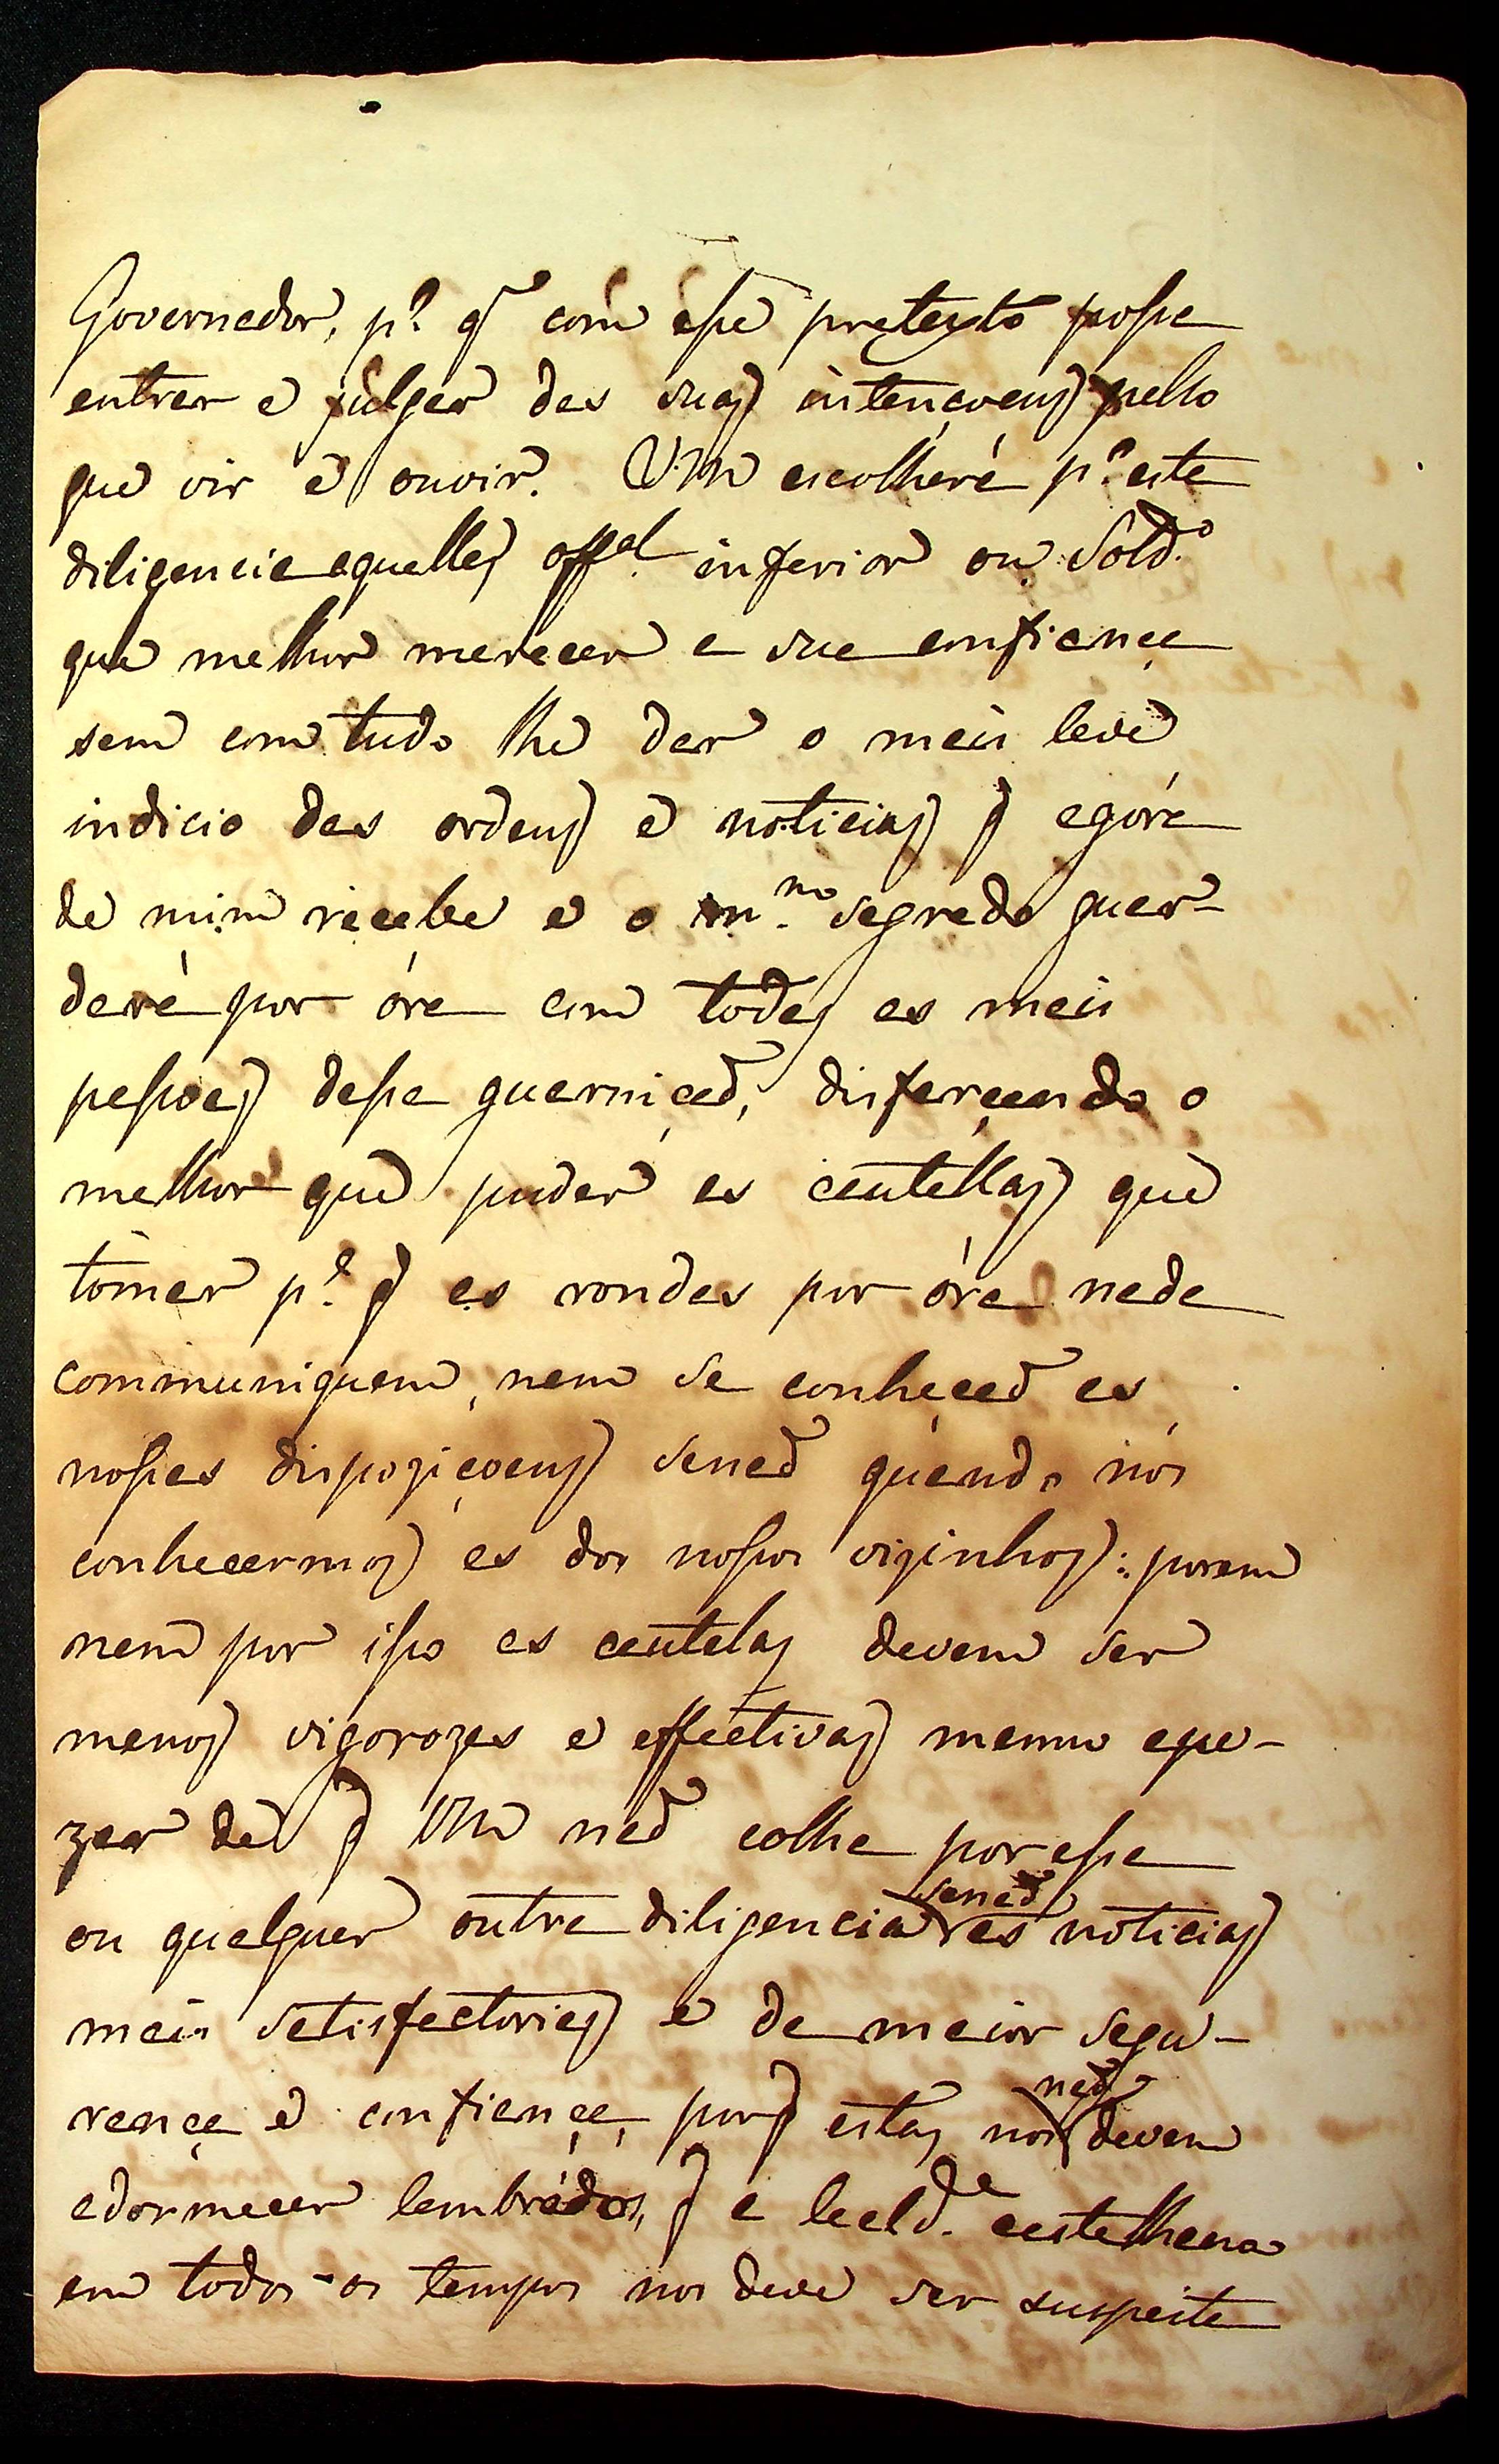 Governador, p.ª q̃ com esse pretexto possa
entrar e julgar das suas intençoens pello
que vir e ouvir. VM escolherá p.ª esta
diligencia aquelles off.al inferior ou Sold.o
que melhor merecer a sua confiança
sem com tudo lhe dar o mais leve
indicio das ordens e noticias q̃ agora
de mim recebe e o m.mo segredo guar-
dará por óra com todas as mais
pessoas dessa guarniçaõ, disfarçando o
melhor que puder as cautellas que
tomar p.ª q̃ as rondas por óra nada
communiquem, nem se conheçaõ as
nossas dispoziçoens senaõ quando nós
conhecermos as dos nossos vizinhos: porem
nem por isso as cautelas devem ser
menos vigorozas e effectivas mesmo ape-
zar de q̃ VM naõ colha por essa
ou qualquer outra diligencia senaõ as noticias
mais satisfactorias e de maior segu-
rança e confiança, porq̃ estas nos naõ devem
adormecer lembrados, q̃ a leald.e castelhana
em todos os tempos nos deve ser suspeita